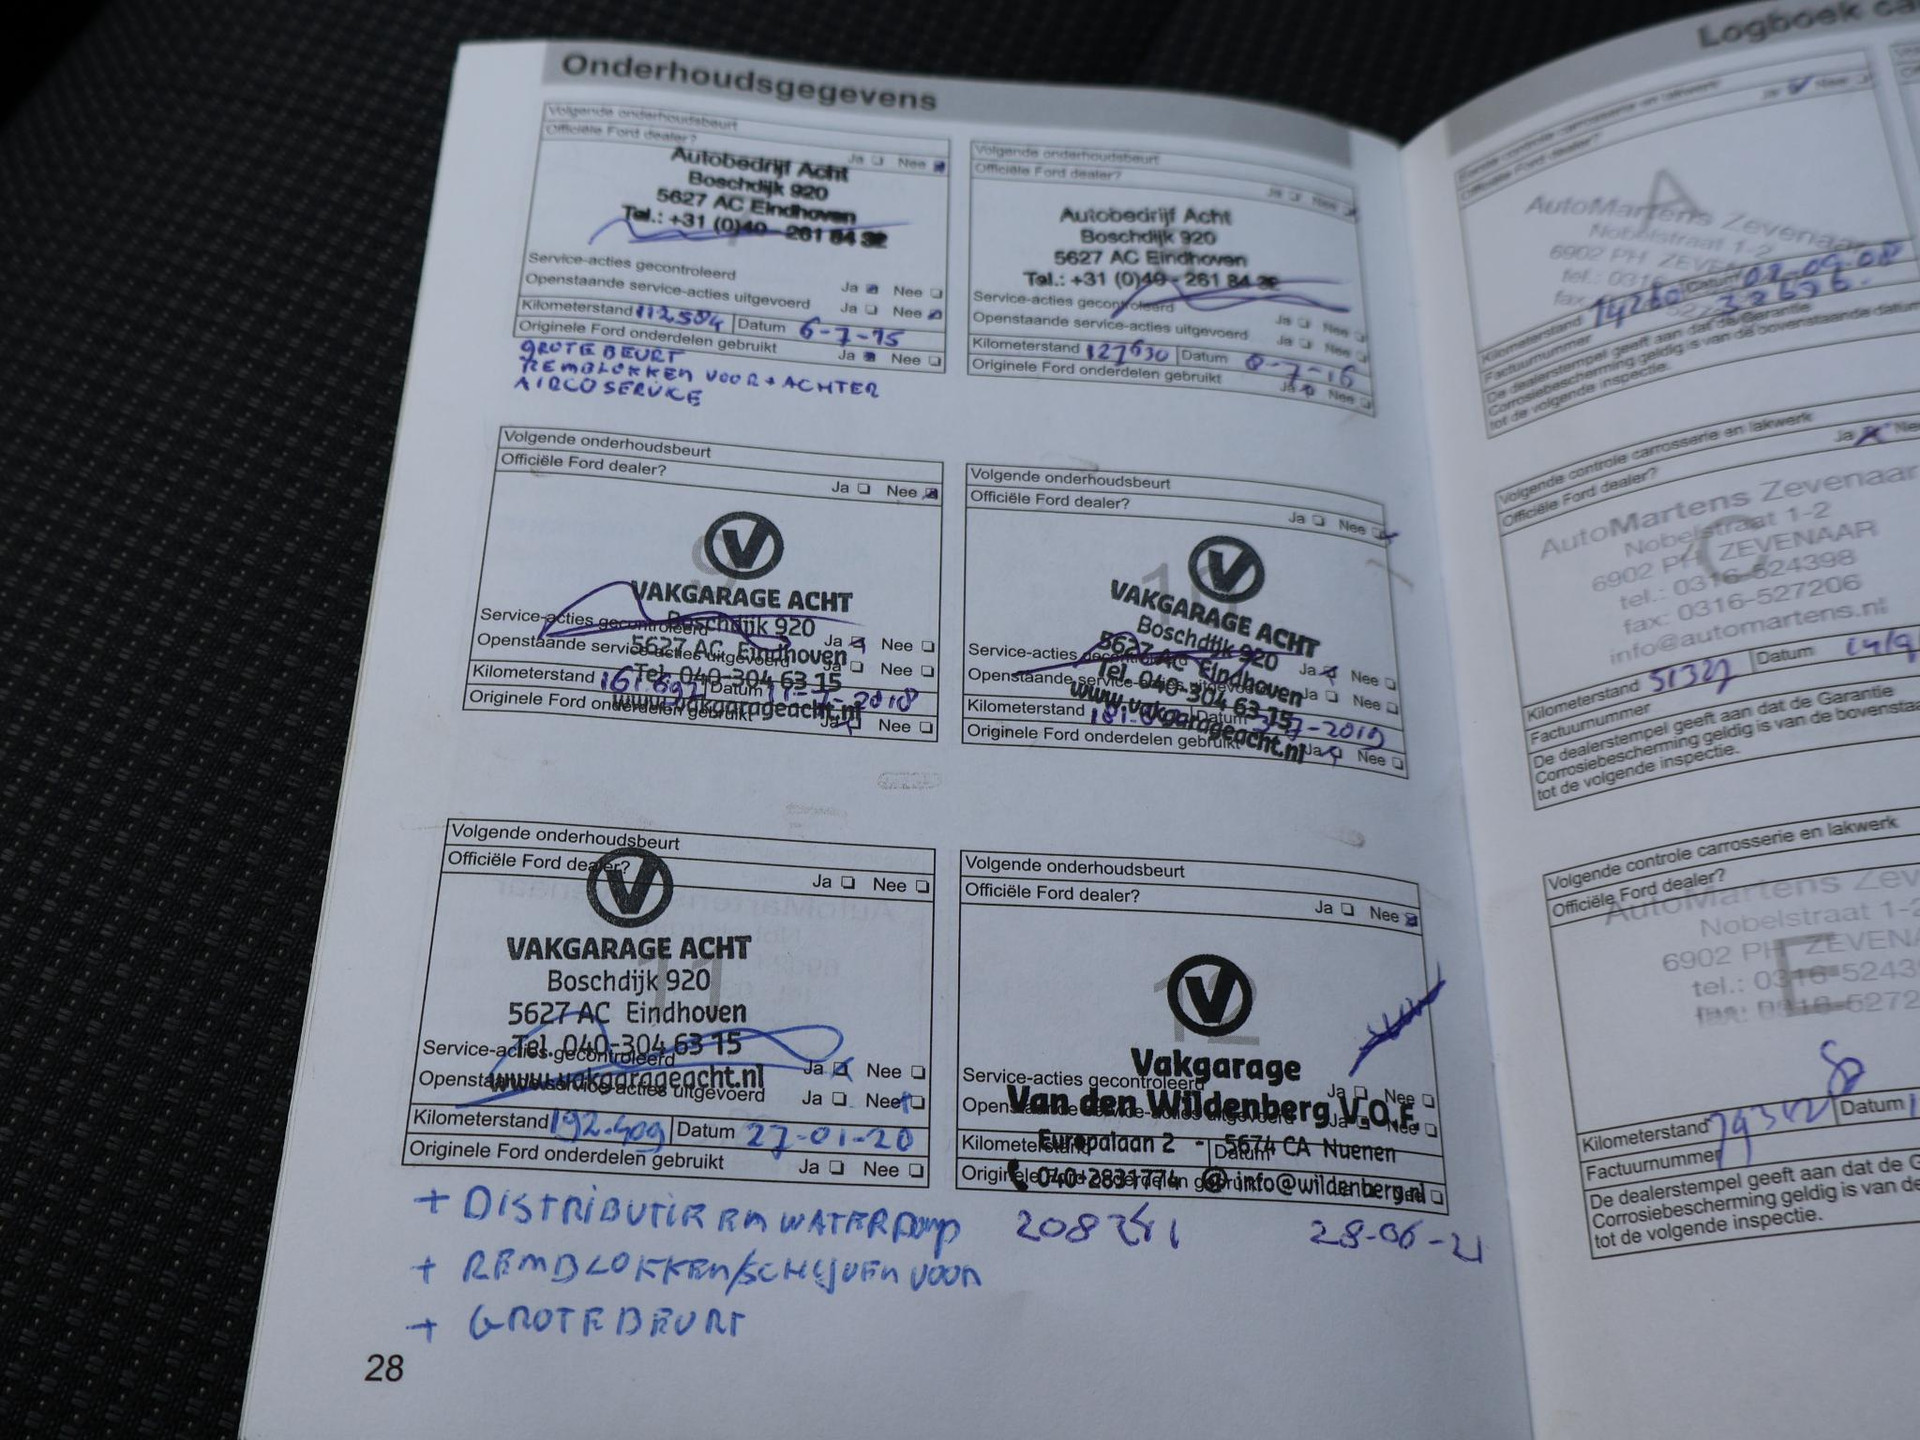 Onderhoudsgegevens
Volgende onderhoudsbeurt
Officiële Ford dealer?
Ja Nee
Autobedrijf Acht
Boschdijk 920
5627 AC Eindhoven
Tel.: +31 (0)40 - 261 84 32
Service-acties gecontroleerd
Openstaande service-acties uitgevoerd
Ja Nee
Ja Nee
Kilometerstand 112584 Datum 6-7-15
Originele Ford onderdelen gebruikt Ja Nee
GROTE BEURT
REMBLOKKEN VOOR + ACHTER
AIRCO SERVICE
Volgende onderhoudsbeurt
Officiële Ford dealer?
Ja Nee
Autobedrijf Acht
Boschdijk 920
5627 AC Eindhoven
Tel.: +31 (0)40 - 261 84 32
Service-acties gecontroleerd
Openstaande service-acties uitgevoerd
Ja Nee
Ja Nee
Kilometerstand 127630 Datum 8-7-16
Originele Ford onderdelen gebruikt Ja Nee
Volgende onderhoudsbeurt
Officiële Ford dealer?
Ja Nee
9
VAKGARAGE ACHT
Boschdijk 920
5627 AC Eindhoven
Tel. 040-304 63 15
www.vakgarageacht.nl
Service-acties gecontroleerd Ja Nee
Openstaande service-acties uitgevoerd Ja Nee
Kilometerstand Datum 2018
Originele Ford onderdelen gebruikt Ja Nee
Volgende onderhoudsbeurt
Officiële Ford dealer?
Ja Nee
VAKGARAGE ACHT
Boschdijk 920
5627 AC Eindhoven
Tel. 040-304 63 15
www.vakgarageacht.nl
Service-acties gecontroleerd Ja Nee
Openstaande service-acties uitgevoerd Ja Nee
Kilometerstand Datum 2019
Originele Ford onderdelen gebruikt Ja Nee
Volgende onderhoudsbeurt
Officiële Ford dealer?
Ja Nee
11
VAKGARAGE ACHT
Boschdijk 920
5627 AC Eindhoven
Tel. 040-304 63 15
www.vakgarageacht.nl
Service-acties gecontroleerd Ja Nee
Openstaande service-acties uitgevoerd Ja Nee
Kilometerstand 192.409 Datum 27-01-20
Originele Ford onderdelen gebruikt Ja Nee
+ DISTRIBUTIE EN WATERPOMP
+ REMBLOKKEN/SCHIJVEN VOOR
+ GROTE BEURT
Volgende onderhoudsbeurt
Officiële Ford dealer?
Ja Nee
12
Vakgarage
Van den Wildenberg V.O.F.
Europalaan 2 - 5674 CA Nuenen
040-2831774 @ info@wildenberg.nl
Service-acties gecontroleerd Ja Nee
Openstaande service-acties uitgevoerd Ja Nee
Kilometerstand Datum
Originele Ford onderdelen gebruikt Nee
208 28-06-21
28
Logboek
A
AutoMartens Zevenaar
Nobelstraat 1-2
6902 PH ZEVENAAR
Kilometerstand Datum 02-09-08
Factuurnummer
De dealerstempel geeft aan dat de Garantie
Corrosiebescherming geldig is van de bovenstaande datum
tot de volgende inspectie.
Volgende controle carrosserie en lakwerk
Officiële Ford dealer?
Ja
C
AutoMartens Zevenaar
Nobelstraat 1-2
6902 PH ZEVENAAR
tel.: 0316-524398
fax: 0316-527206
info@automartens.nl
Kilometerstand 51327 Datum
Factuurnummer
De dealerstempel geeft aan dat de Garantie
Corrosiebescherming geldig is van de
tot de volgende inspectie.
Volgende controle carrosserie en lakwerk
Officiële Ford dealer?
E
AutoMartens
Nobelstraat
6902 PH
tel.: 0316-5243
fax: 0316-5272
Kilometerstand Datum
Factuurnummer
De dealerstempel geeft aan dat de
Corrosiebescherming geldig is van de
tot de volgende inspectie.